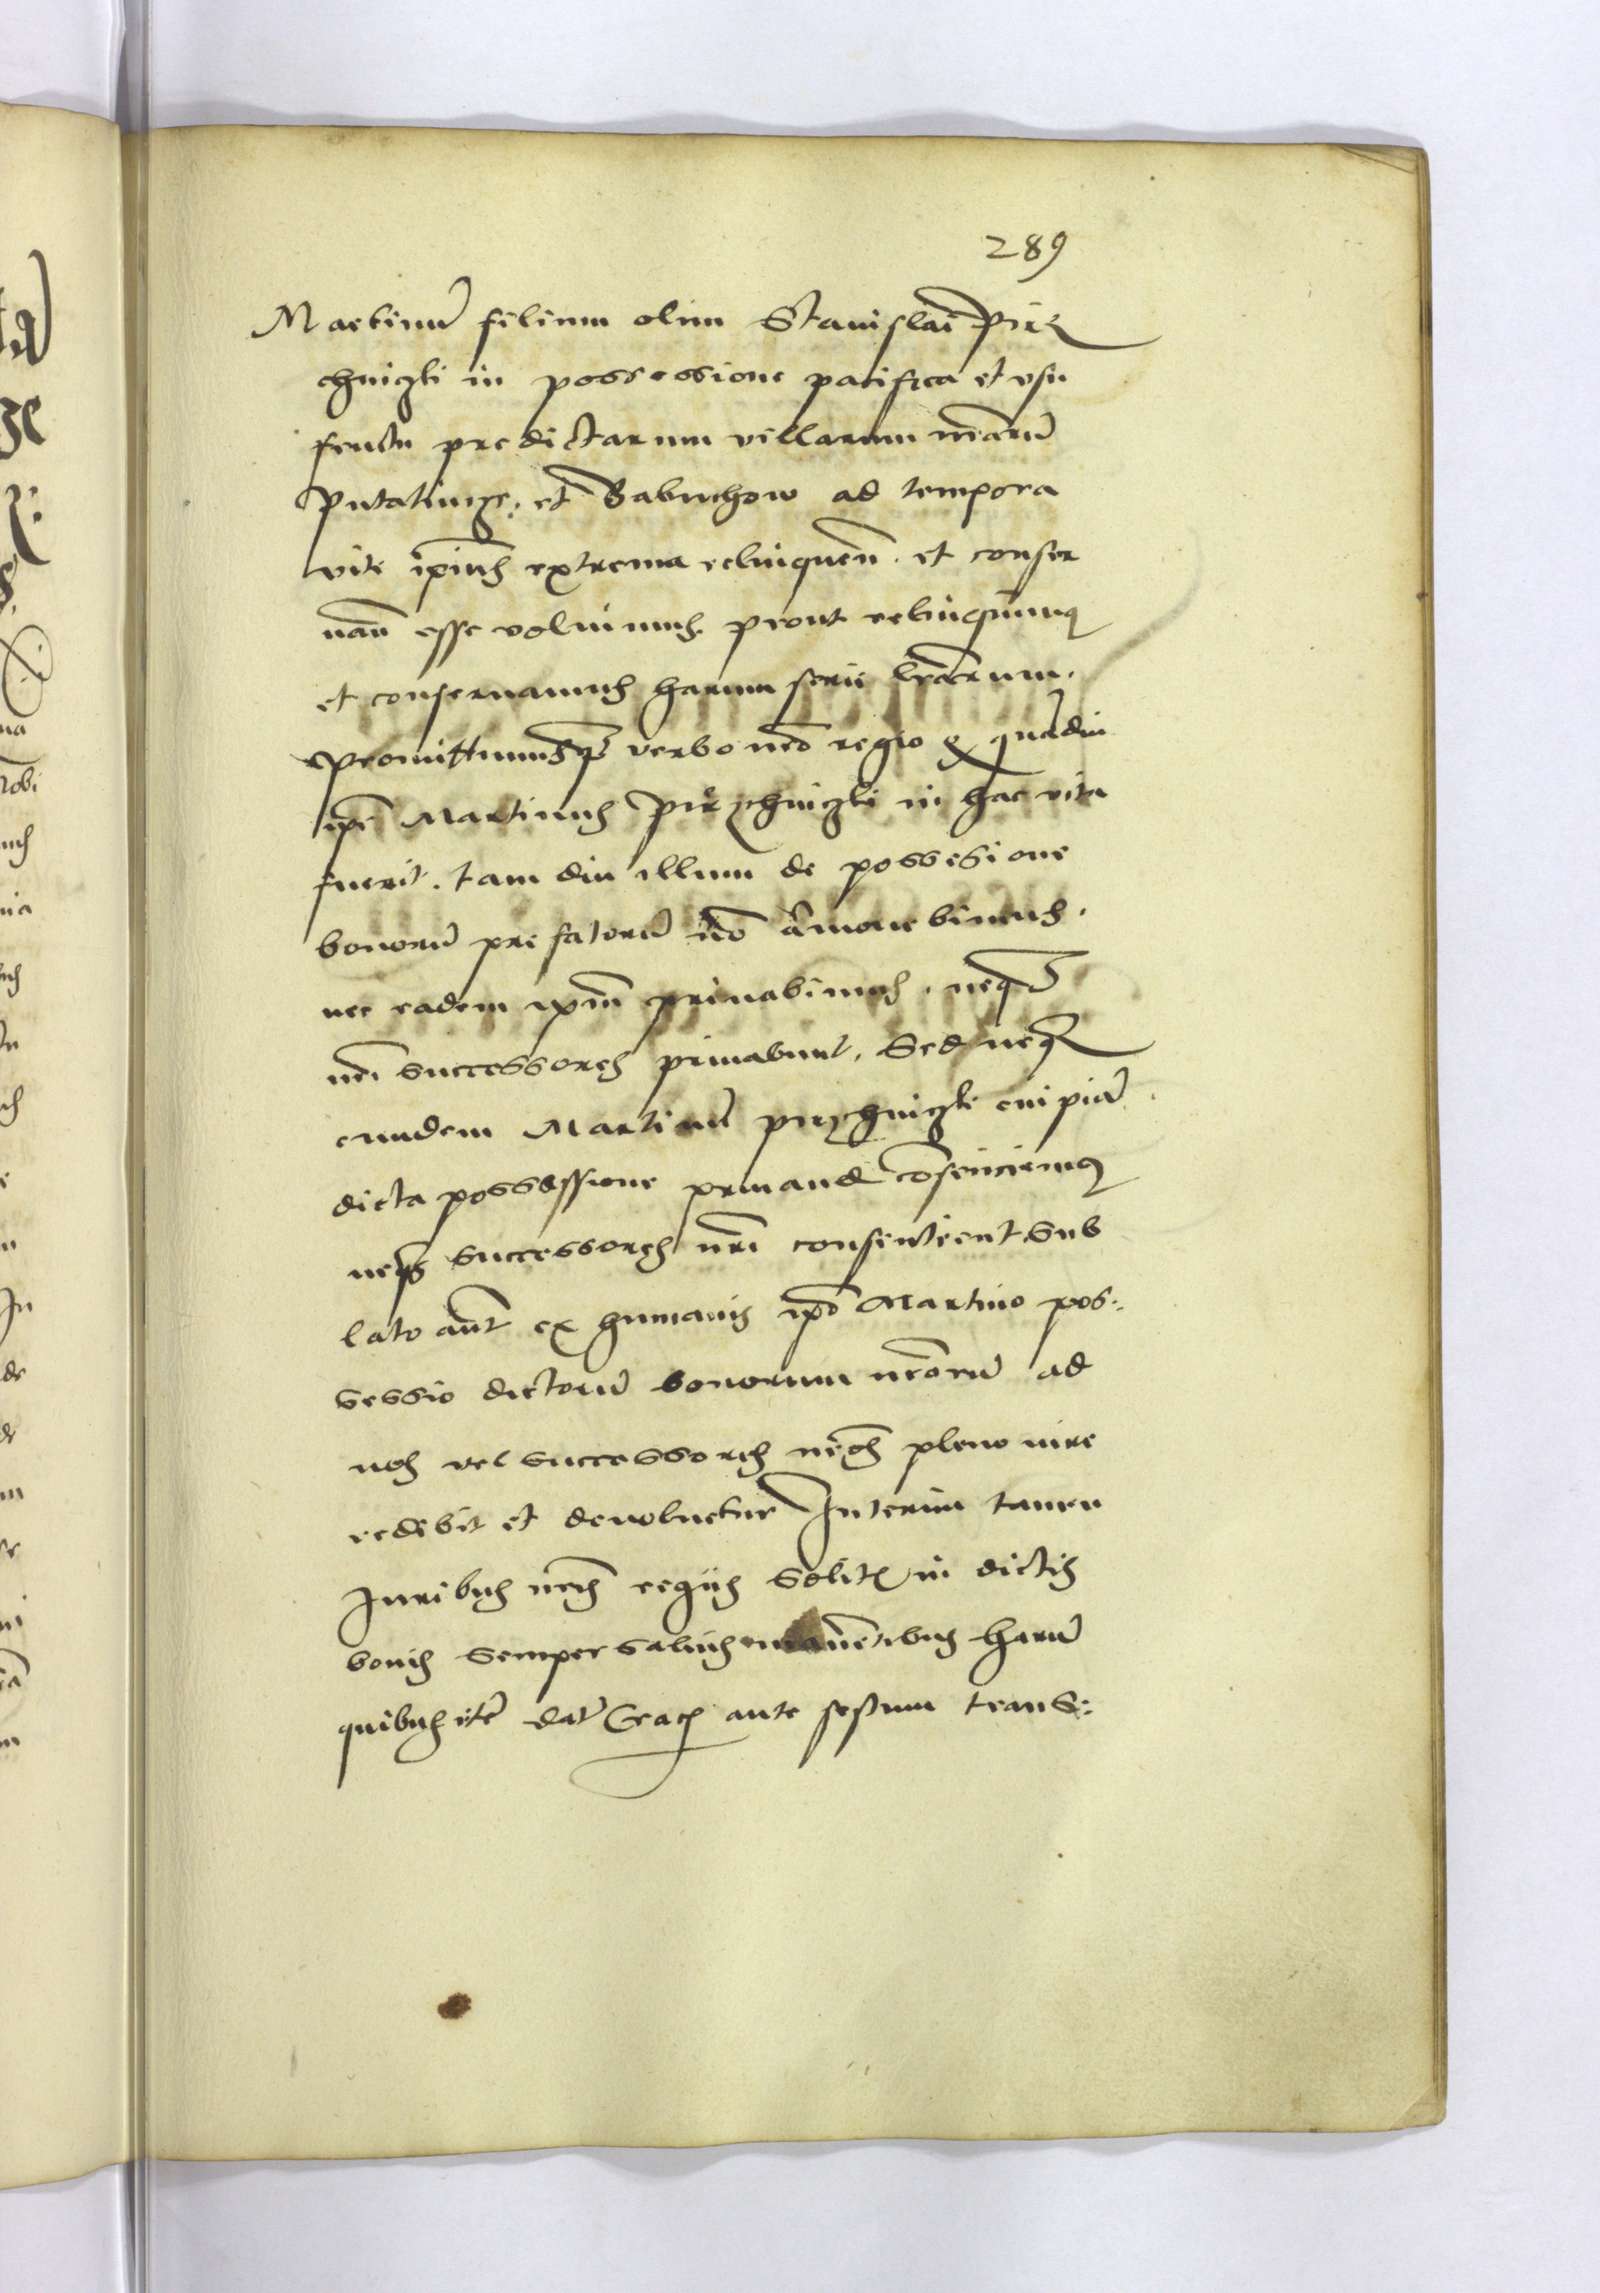 289
Martinu filium olim Stanislai Pirz
chniczki in possessione pacifica et vsu
fructu predictarum villarum nrarum
Putatincze, et Babuchow ad tempora
vite ipius extrema relinquen. et conser
uan esse voluimus. prout relinquimus
et conseruamus harum serie lrarum.
Promittimusq verbo nro regio q quadiu
ipe Martinus Pirzchniczki in hac vita
fuerit. tam diu illum de possesione
bonoru prefatoru no amouebimus.
nec eadem ipm priuabimus. neq
nri successores priuabunt. Sed neq
eundem Martinu pirzchniczki cuipia
dicta possessione priuand consenciemus
neq successores nri consentient Sub
lato aut ex humanis ipo Martino pos:
sessio dictoru bonorum nroru ad
nos vel successores nros pleno iure
redibit et deuoluetur Interim tamen
Iuribus nris regiis solitis in dictis
bonis semper saluis manetibus haru
quibus etc dat Crac ante festum trans: